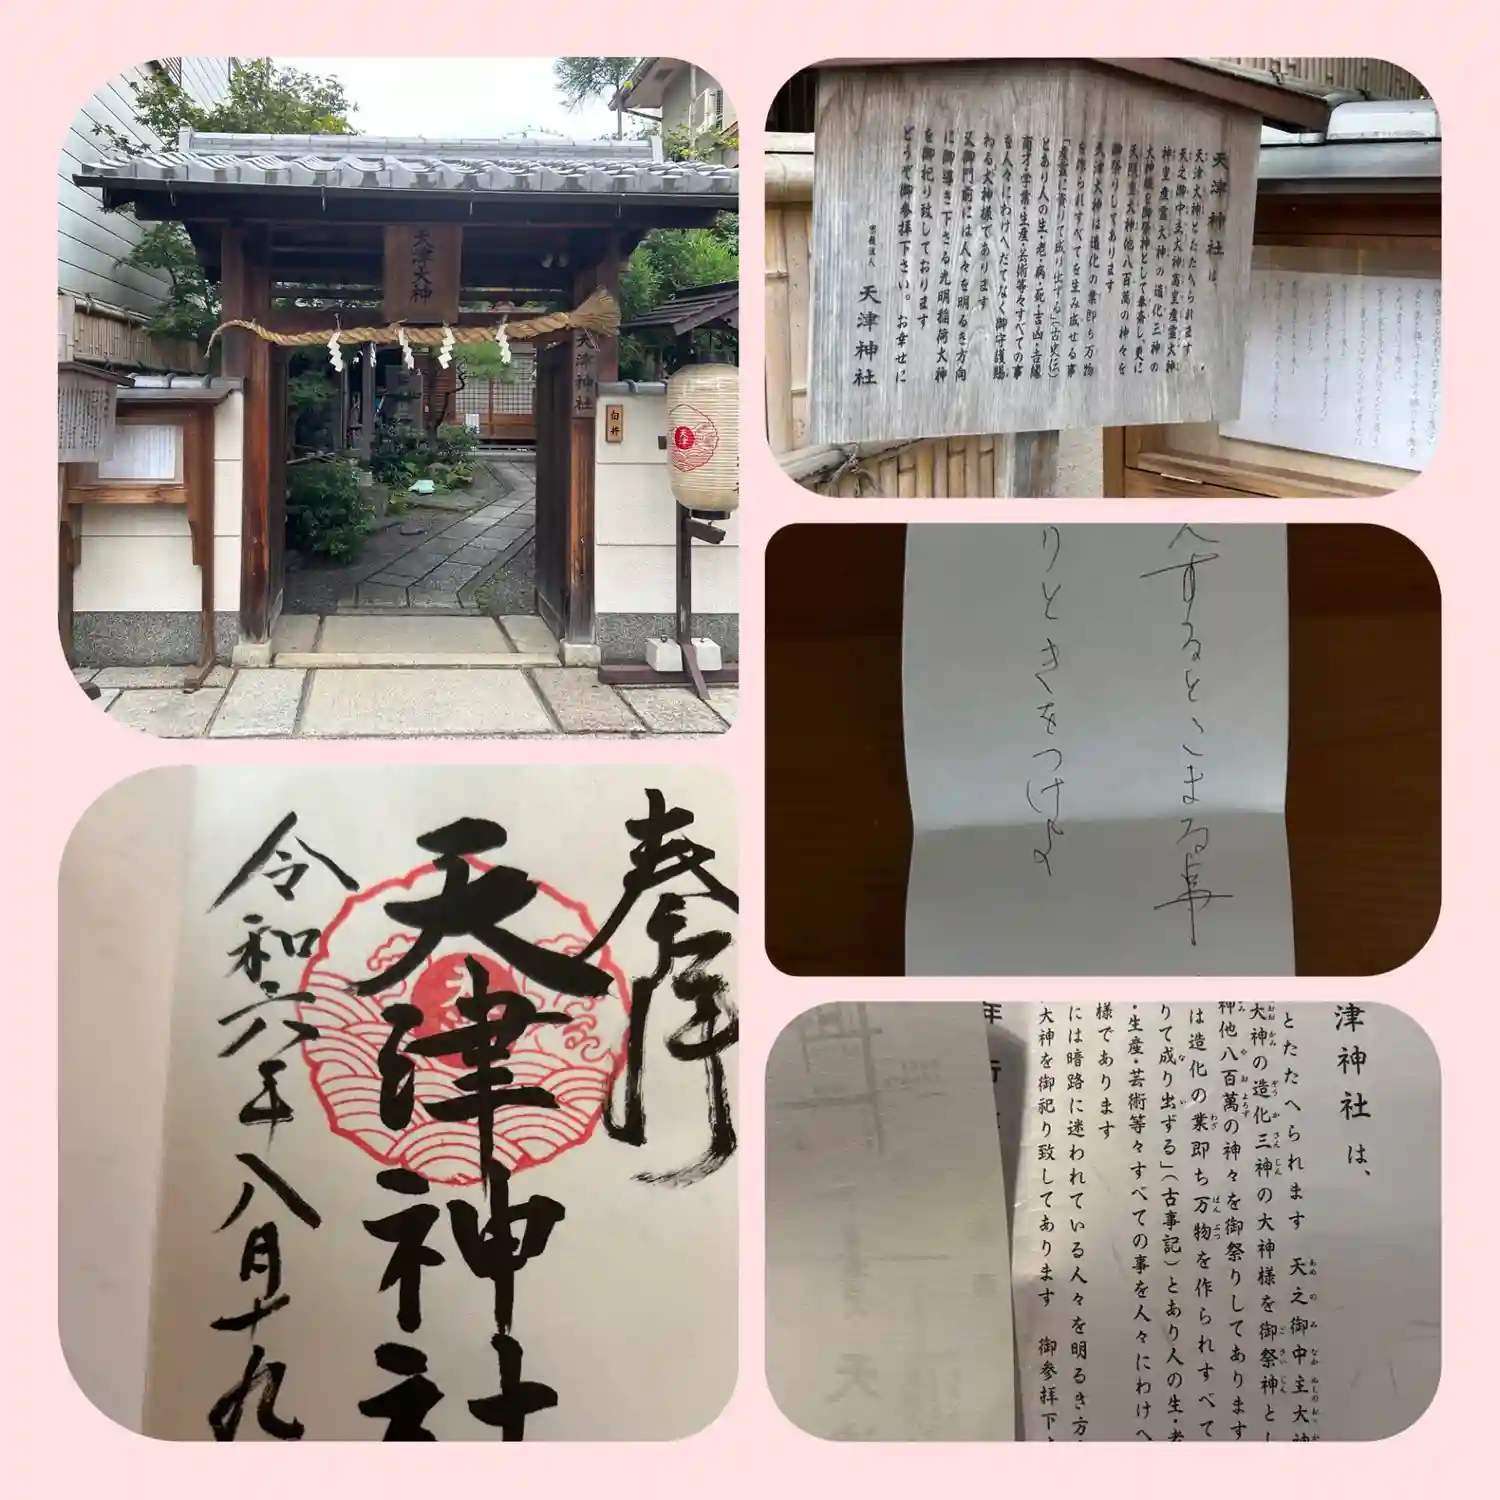 天津大神
天津神社
白井
天津
天津神社は
天津大神とたたへられます
天之御中主大神高皇産霊大神
神皇産霊大神の造化三神の
大神様を御祭神として奉斎し、更に
天照皇大神他八百萬の神々を
御祭りしてあります
天津大神は造化の業即ち万物
を作られすべてを生み成せる事
「産霊に寄りて成り出ずる」(古史伝)
とあり人の生・老・病・死・吉凶・吉縁
商才・学業・生産・芸術等々すべての事
を人々にわけへだてなく御守護賜
わる大神様であります
又御門前には人々を明るき方向
に御導き下さる光明稲荷大神
を御祀り致しております
どうぞ御参拝下さい。お幸せに
宗教法人 天津神社
するとこまる事
りときをつけよ
奉拝
天津神社
令和六年八月十九
津神社は、
とたたへられます 天之御中主大神
大神の造化三神の大神様を御祭神とし
神他八百萬の神々を御祭りしてあります
は造化の業即ち万物を作られすべて
りて成り出ずる」(古事記)とあり人の生・老
・生産・芸術等々すべての事を人々にわけへ
様であります
には暗路に迷われている人々を明るき方
大神を御祀り致してあります 御参拝下